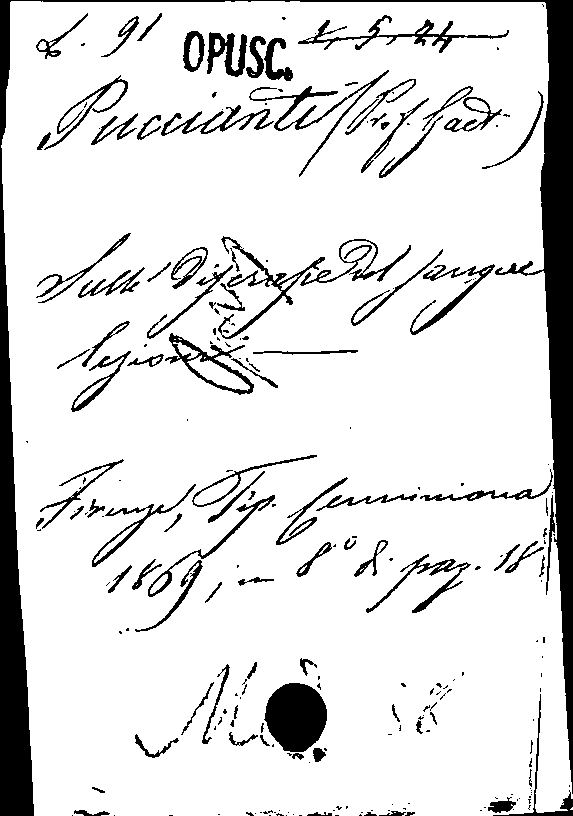 L. 91 OPUSC. 1, 5, 24
Pucciante (Prof. Gaet.)
Sulle Discrasie del sangue
lezione
Firenze, Tip. Cenniniana
1869; in 8° di pag. 18